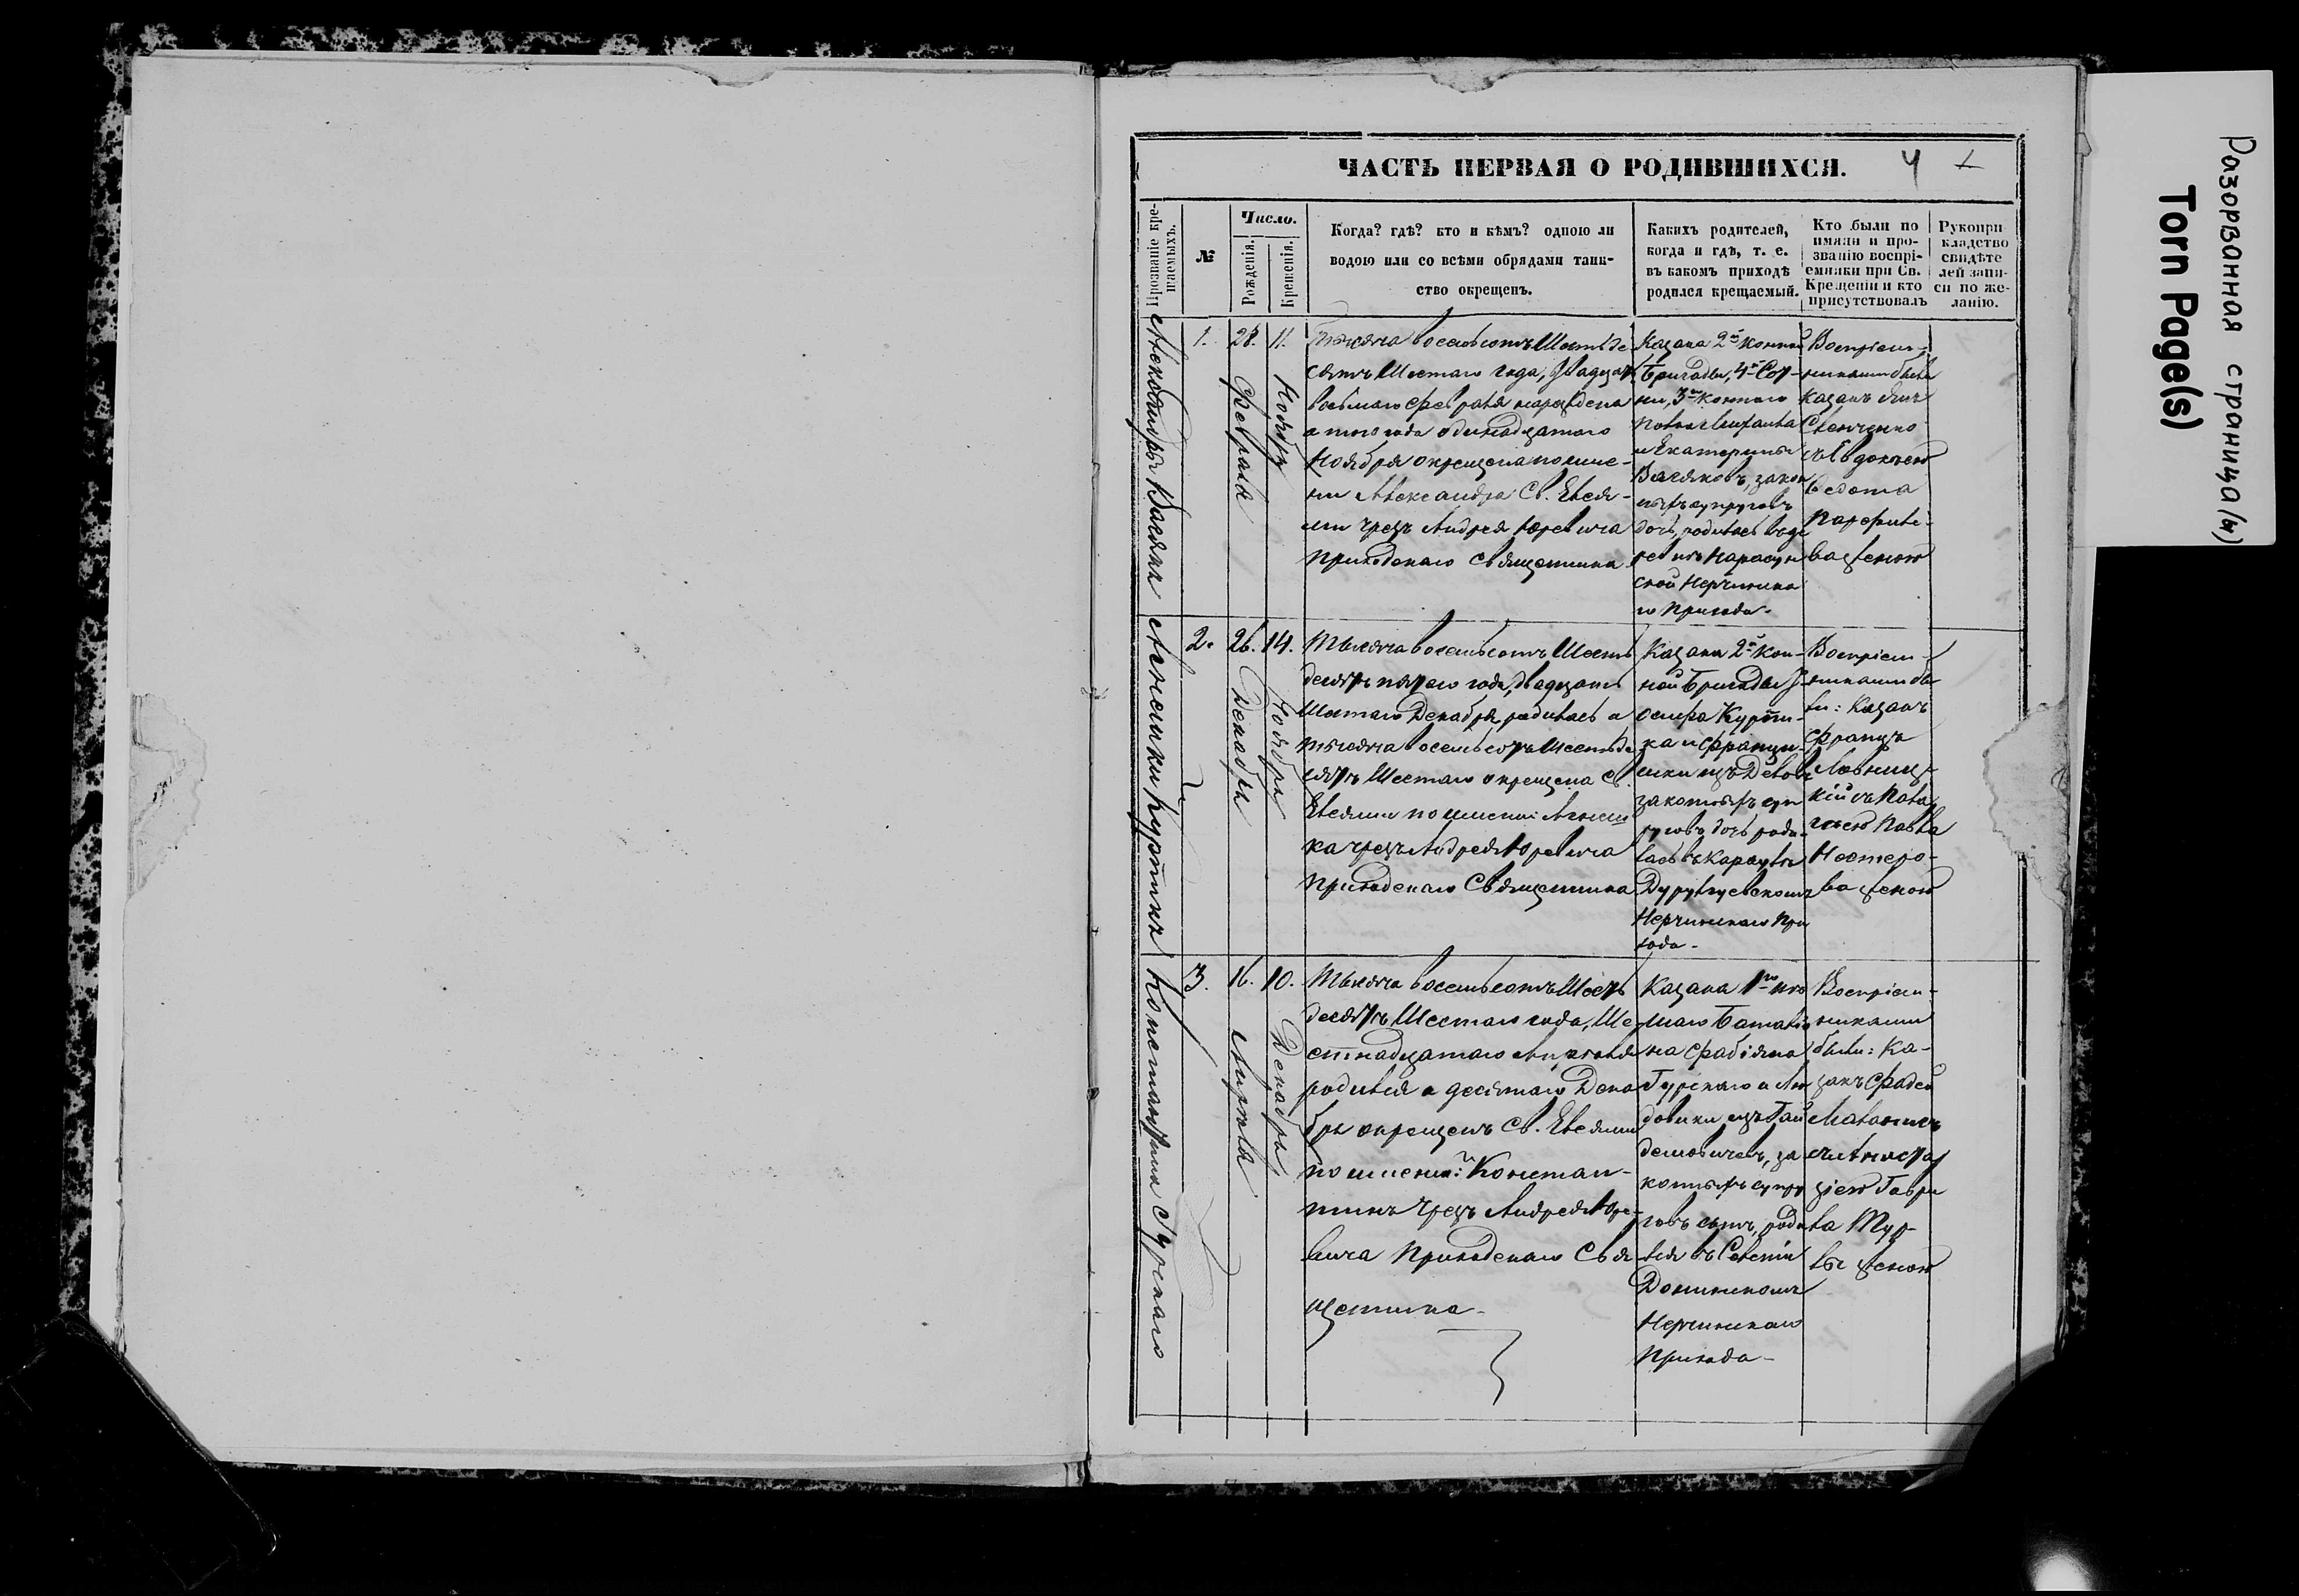 ЧАСТЬ ПЕРВАЯ О РОДИВШИХСЯ. 4
Прозваніе кре-
щаемыхъ.
№
Число.
Рожденія.
Крещенія.
Когда? гдѣ? кто и кѣмъ? одною ли
водою или со всѣми обрядами таин-
ство окрещенъ.
Какихъ родителей,
когда и гдѣ, т. е.
въ какомъ приходѣ
родился крещаемый.
Кто были по
имяни и про-
званію воспрі-
емники при Св.
Крещеніи и кто
присутствовалъ
Рукопри
кладство
свидѣте
лей запи-
си по же-
ланію.
Александры
1.
28. Февраля
11. Ноября
Тысяча восемьсотъ Шестьде
сятъ Шестаго года, двадцать
восьмаго Февраля
а того года одинадцатаго
Ноября окрещена по име-
ни Александра Св. Елея-
ми чрезъ Андрея Юревича
Приходскаго Священника
Казака 2й конной
Бригады, 4й Сот-
ни, 3го коннаго
Полка
и Екатерины
закон
ныхъ супруговъ
дочь, родилась въ де
ревнѣ
ской Нерчинска
го Прихода.
Воспріем-
никами были
Казакъ
съ Евдокіею
Федота
женою
Агнешки Куртикъ
2.
26. Декабря
14. Ноября
Тысяча восемьсотъ Шесть
десятъ пятаго года, двадцать
Шестаго Декабря родилась а
тысяча восемьсотъ Шестьде
сятъ Шестаго окрещена Св.
Елеями по имени: Агнеш
ка чрезъ Андрея Юревича
Приходскаго Священника
Казака 2й Кон-
ной Бригады І-
осифа Курти-
ка и Францы-
шки изъ
законныхъ суп
руговъ дочь роди-
лась въ Караулѣ
Дурулгуевскомъ
Нерчинскаго При
хода.
Воспріем-
никами бы
ли: Казакъ
Францъ
кій съ Пела
геею Павла
Нестеро-
ва женою
Константина Гурскаго
3.
16. Апрѣля
10. Декабря
Тысяча восемьсотъ Шесть
десятъ Шестаго года, Ше-
стнадцатаго Апрѣля
родился а десятаго Дека
бря окрещенъ Св. Елеями
по имени: Констан-
тинъ чрезъ Андрея Юре-
вича Приходскаго Свя
щенника.
Казака 1го пѣ
шаго Баталіо
на Фабіяна
Гурскаго и Лю
довики изъ Гай
за
конныхъ супру
говъ сынъ, роди
лся въ Селеніи
Донинскомъ
Нерчинскаго
Прихода.
Воспріем-
никами
были: Ка-
закъ Фадей
съ Анастаз
іею Гаври
ла
женою
Разорванная страница/ы)
Torn Page(s)